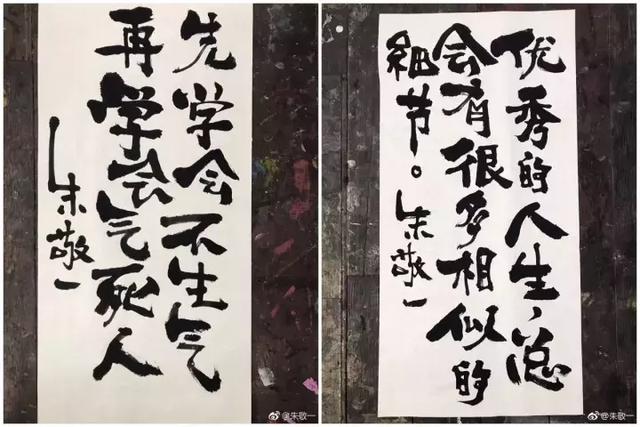 先学会不生气
再学会气死人
朱敬一
@朱敬一
优秀的人生，总
会有很多相似的
细节。朱敬一
@朱敬一